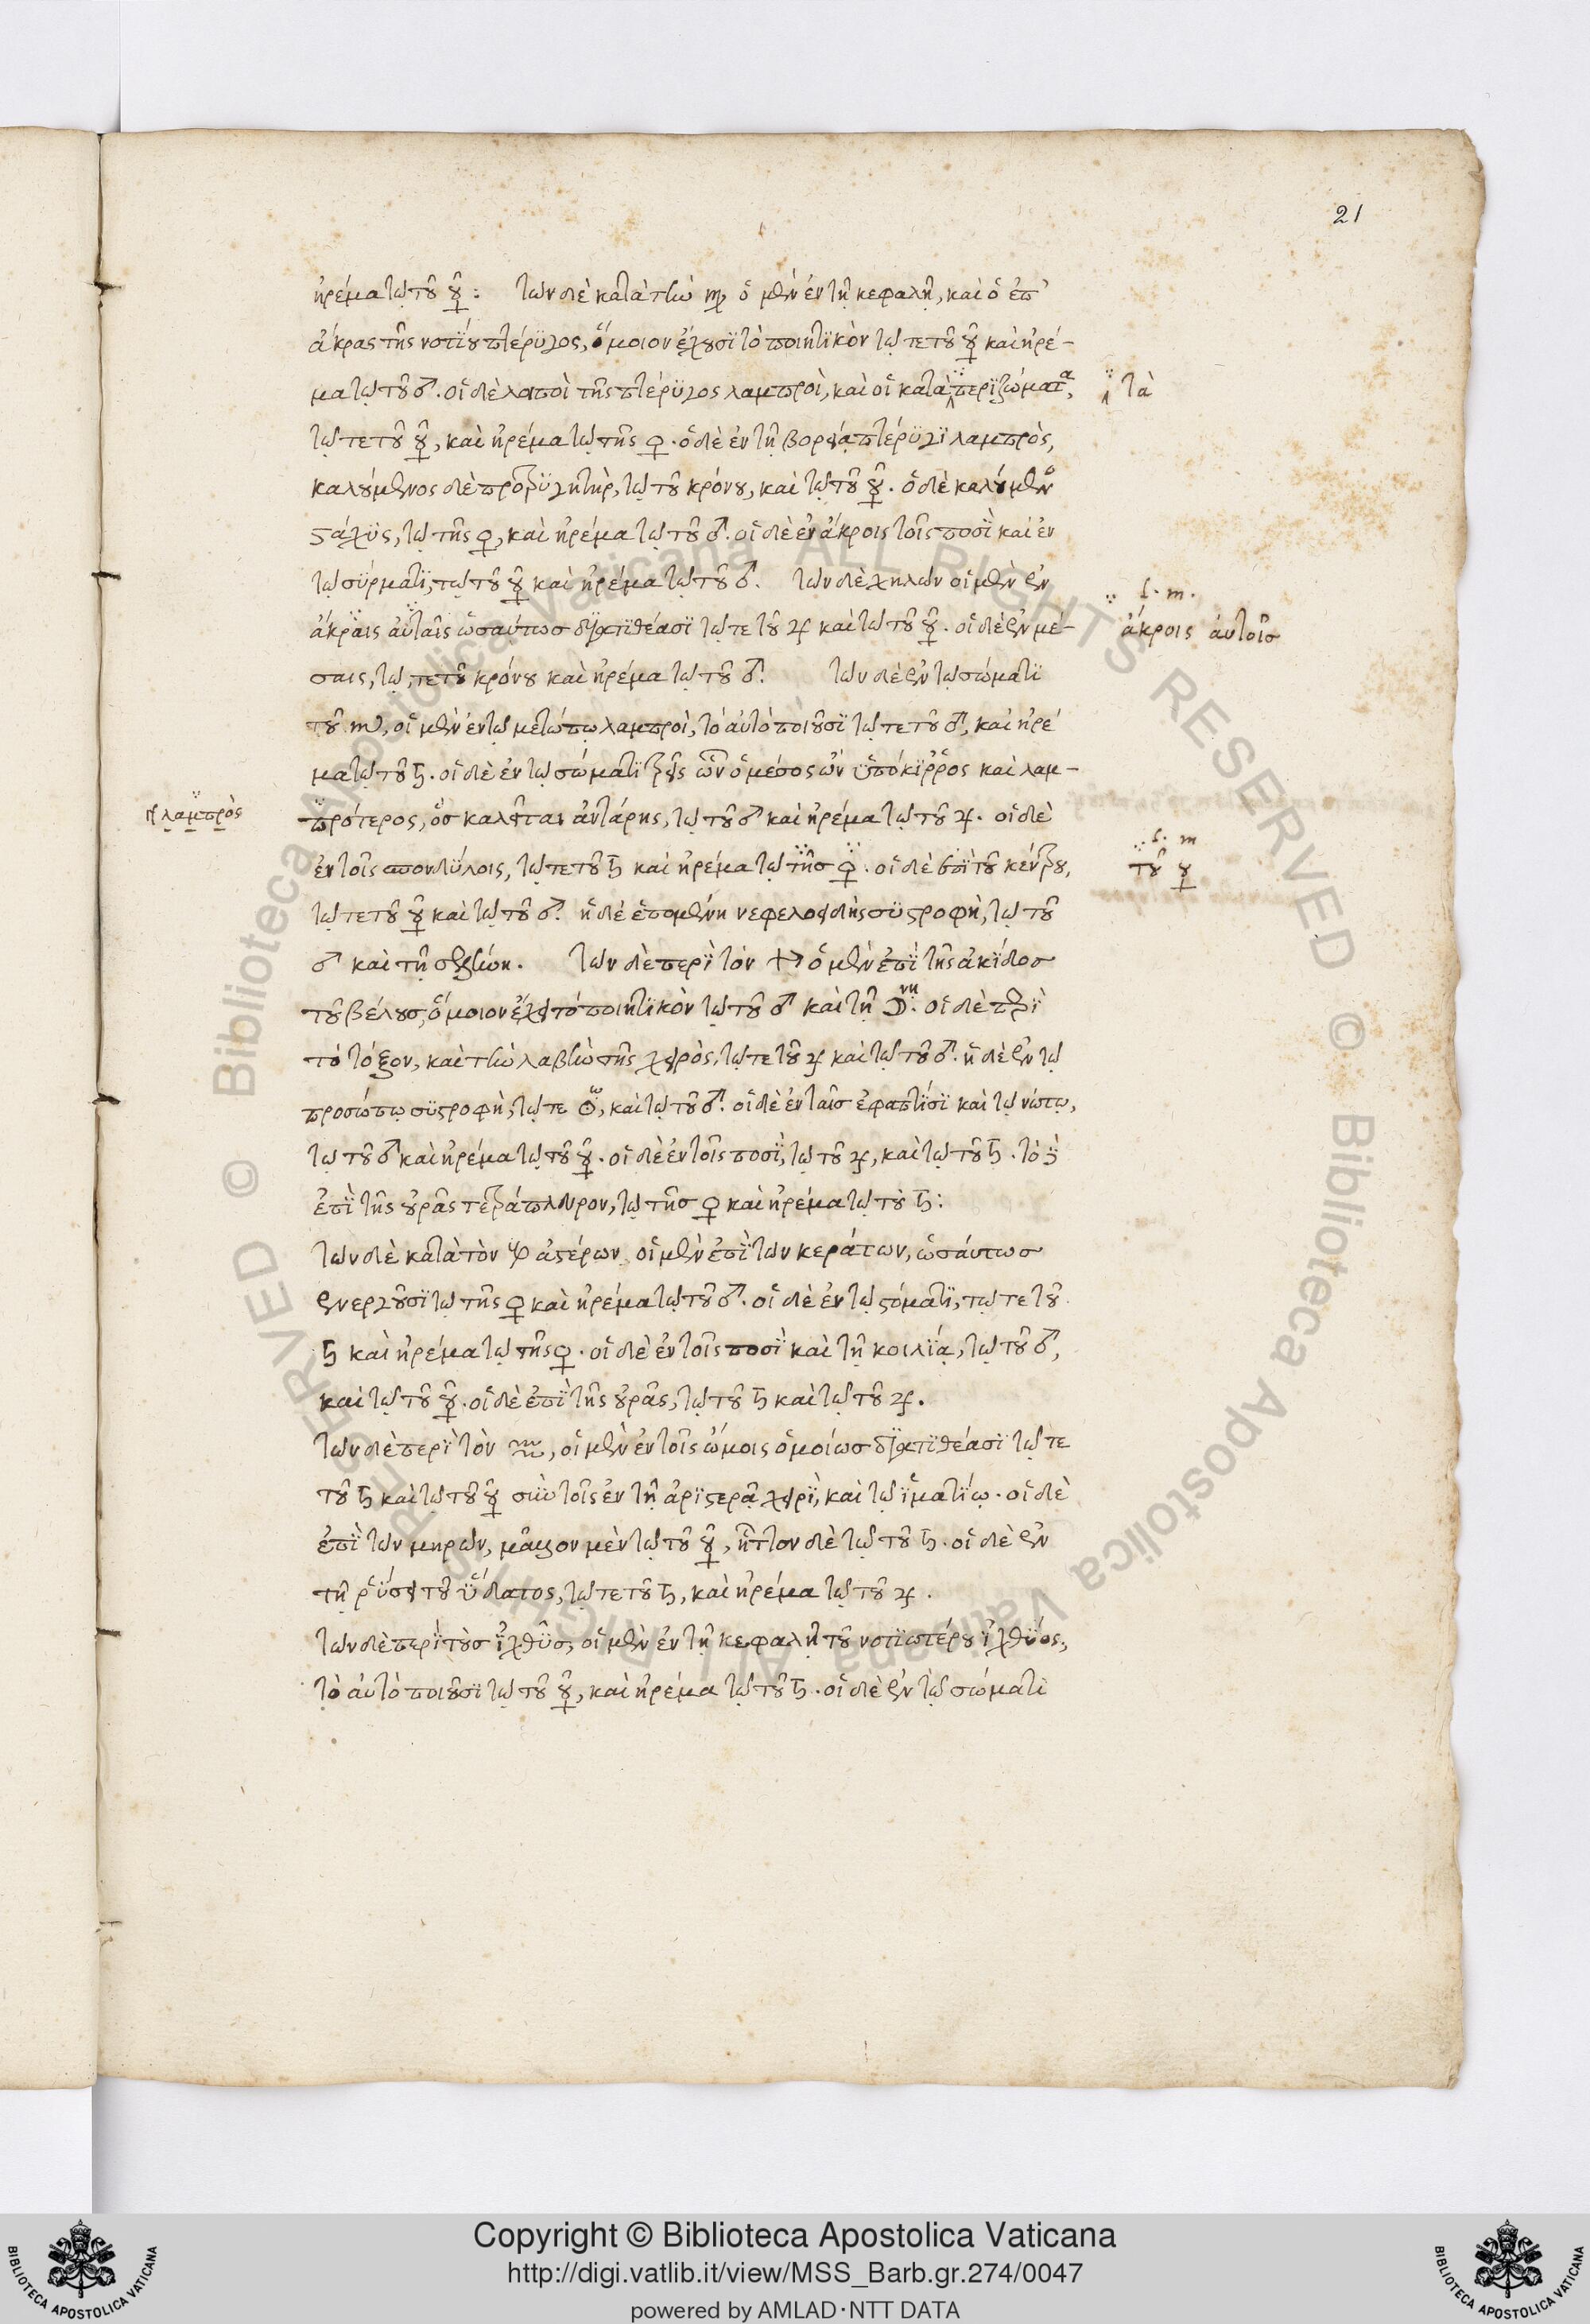 21
ἠρέμα τῷ τοῦ ☿: τῶν δὲ κατὰ τὴν ♍ ὁ μὲν ἐν τῇ κεφαλῇ, καὶ ὁ ἐπ'
ἄκρας τῆς νοτίου πτέρϋγος, ὅμοιον ἔχουσϊ τὸ ποιητϊκὸν τῷ τε τοῦ ☿ καὶ ἠρέ-
μα τῷ τοῦ ♂. οἱ δὲ λοιποὶ τῆς πτέρϋγος λαμπροὶ, καὶ οἱ κατὰ περϊζώματα,
τὰ
τῷ τε τοῦ ☿, καὶ ἠρέμα τῷ τῆς ♀. ὁ δὲ ἐν τῇ βορείᾳ πτέρϋγϊ λαμπρὸς,
καλούμενος δὲ προτρϋγητὴρ, τῷ τοῦ κρόνου, καὶ τῷ τοῦ ☿. ὁ δὲ καλούμενος
στάχϋς, τῷ τῆς ♀, καὶ ἠρέμα τῷ τοῦ ♂. οἱ δὲ ἐν ἄκροις τοῖς ποσϊ καὶ ἐν
τῷ σύρματϊ, τῷ τοῦ ☿ καὶ ἠρέμα τῷ τοῦ ♂. τῶν δὲ χηλῶν οἱ μὲν ἐν
ἄκραις αὐταῖς ὡσαύτως δϊατϊθέασϊ τῷ τε τοῦ ♃ καὶ τῷ τοῦ ☿. οἱ δὲ ἐν μέ-
f. m.
ἄκροις αὐτοῖς
σαις, τῷ τε τοῦ κρόνου καὶ ἠρέμα τῷ τοῦ ♂. τῶν δὲ ἐν τῷ σώματϊ
τοῦ ♏, οἱ μὲν ἐν τῷ μετώπῳ λαμπροὶ, τὸ αὐτὸ ποιοῦσϊ τῷ τε τοῦ ♂, καὶ ἠρέ
μα τῷ τοῦ ♄. οἱ δὲ ἐν τῷ σώματϊ τρεῖς ὧν ὁ μέσος ὢν ὑπόκϊρρος καὶ λαμ-
πρότερος, ὃς καλεῖται ἀντάρης, τῷ τοῦ ♂ καὶ ἠρέμα τῷ τοῦ ♃. οἱ δὲ
λαμπρὸς
ἐν τοῖς σπονδύλοις, τῷ τε τοῦ ♄ καὶ ἠρέμα τῷ τῆς ♀. οἱ δὲ ἐπὶ τοῦ κέντρου,
f. m
τοῦ ☿
τῷ τε τοῦ ☿ καὶ τῷ τοῦ ♂. ἡ δὲ ἑπομένη νεφελοειδὴς σϋστροφὴ, τῷ τοῦ
♂ καὶ τῇ σελήνη. τῶν δὲ περὶ τὸν ♐ ὁ μὲν ἐπὶ τῆς ἀκίδος
τοῦ βέλους, ὅμοιον ἔχει τὸ ποιητϊκὸν τῷ τοῦ ♂ καὶ τῇ ☽νη. οἱ δὲ περὶ
τὸ τόξον, καὶ τὴν λαβὴν τῆς χειρὸς, τῷ τε τοῦ ♃ καὶ τῷ τοῦ ♂. ἡ δὲ ἐν τῷ
προσώπῳ σϋστροφὴ, τῷ τε ☉ω, καὶ τῷ τοῦ ♂. οἱ δὲ ἐν ταῖς ἐφαπτίσϊ καὶ τῷ νώτῳ,
τῷ τοῦ ♂ καὶ ἠρέμα τῷ τοῦ ☿. οἱ δὲ ἐν τοῖς ποσϊ, τῷ τοῦ ♃, καὶ τῷ τοῦ ♄. τὸ δὲ
ἐπὶ τῆς οὐρᾶς τετράπλευρον, τῷ τῆς ♀ καὶ ἠρέμα τῷ τοῦ ♄:
τῶν δὲ κατὰ τὸν ♑ ἀστέρων οἱ μὲν ἐπὶ τῶν κεράτων, ὡσαύτως
ἐνεργοῦσϊ τῷ τῆς ♀ καὶ ἠρέμα τῷ τοῦ ♂. οἱ δὲ ἐν τῷ στόματϊ, τῷ τε τοῦ
♄ καὶ ἠρέμα τῷ τῆς ♀. οἱ δὲ ἐν τοῖς ποσϊ καὶ τῇ κοιλϊᾳ, τῷ τοῦ ♂,
καὶ τῷ τοῦ ☿. οἱ δὲ ἐπὶ τῆς οὐρᾶς, τῷ τοῦ ♄ καὶ τῷ τοῦ ♃.
τῶν δὲ περὶ τὸν ♒, οἱ μὲν ἐν τοῖς ὤμοις ὁμοίως δϊατϊθέασϊ τῷ τε
τοῦ ♄ καὶ τῷ τοῦ ☿ σὺν τοῖς ἐν τῇ ἀρϊστερᾷ χειρϊ, καὶ τῷ ἱματϊῳ. οἱ δὲ
ἐπὶ τῶν μηρῶν, μᾶλλον μὲν τῷ τοῦ ☿, ἧττον δὲ τῷ τοῦ ♄. οἱ δὲ ἐν
τῇ ῥύσει τοῦ ὕδατος, τῷ τε τοῦ ♄, καὶ ἠρέμα τῷ τοῦ ♃.
τῶν δὲ περὶ τοὺς ἰχθῦς, οἱ μὲν ἐν τῇ κεφαλῇ τοῦ νοτϊωτέρου ἰχθύος,
τὸ αὐτὸ ποιοῦσϊ τῷ τοῦ ☿, καὶ ἠρέμα τῷ τοῦ ♄. οἱ δὲ ἐν τῷ σώματϊ
© Biblioteca Apostolica Vaticana ALL RIGHTS RESERVED
Copyright © Biblioteca Apostolica Vaticana
http://digi.vatlib.it/view/MSS_Barb.gr.274/0047
powered by AMLAD·NTT DATA
BIBLIOTECA APOSTOLICA VATICANA
BIBLIOTECA APOSTOLICA VATICANA